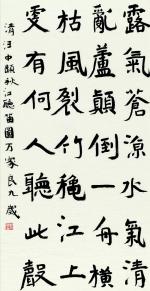 露氣蒼涼水氣清
亂蘆顛倒一舟橫
枯風裂竹穐江上
更有何人聽此聲
清汪中題秋江聽笛圖万家良九歲